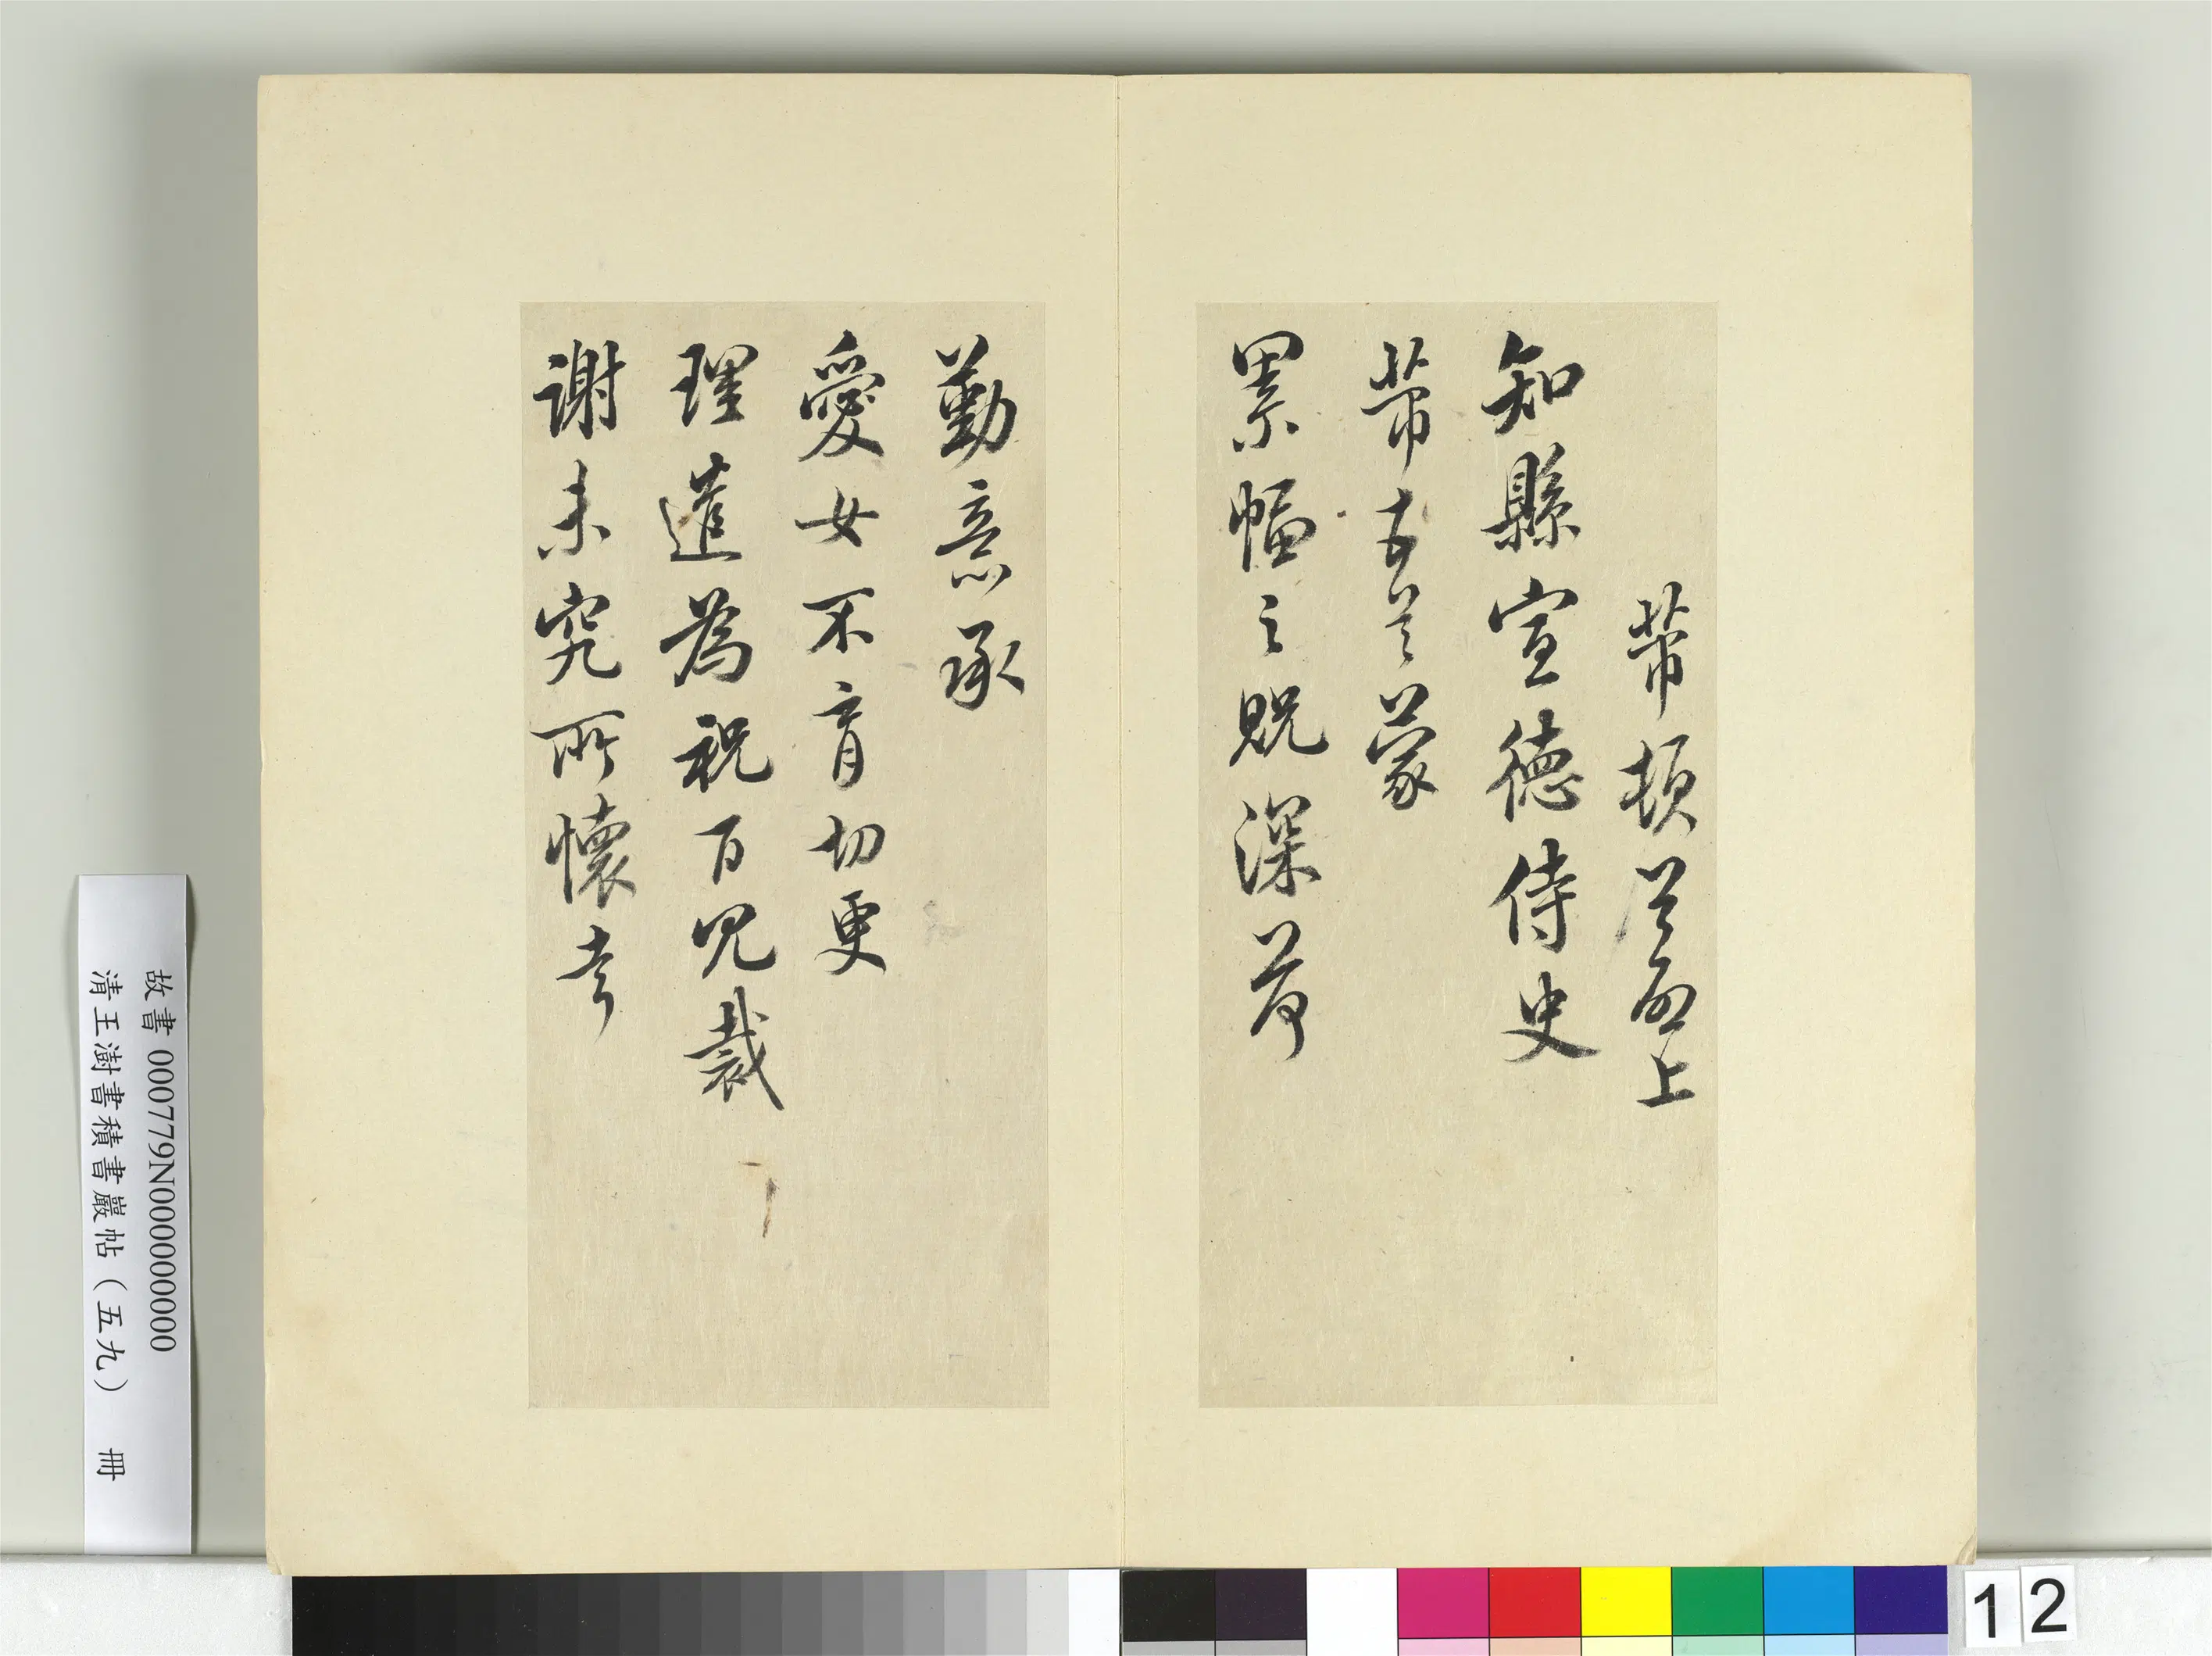 芾頓首上
知縣宣德侍史
芾蒙
累幅之貺深荷
勤意承
愛女不育切更
理遣為祝百冗裁
謝未究所懷
故書 000779N000000000
清王澍書積書巖帖（五九） 冊
12